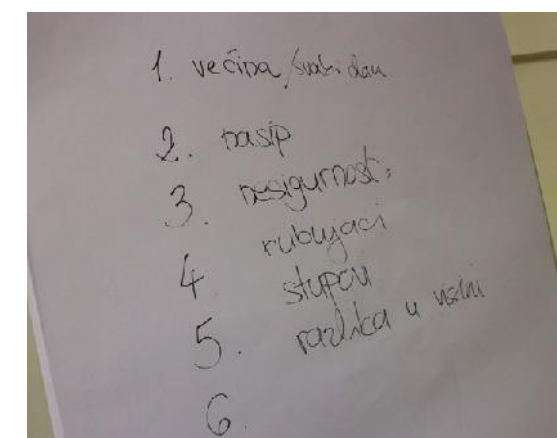 1. većina /svaki dan
2. nasip
3. nesigurnost:
rubnjaci
4 stupovi
5. razlika u visini
6.